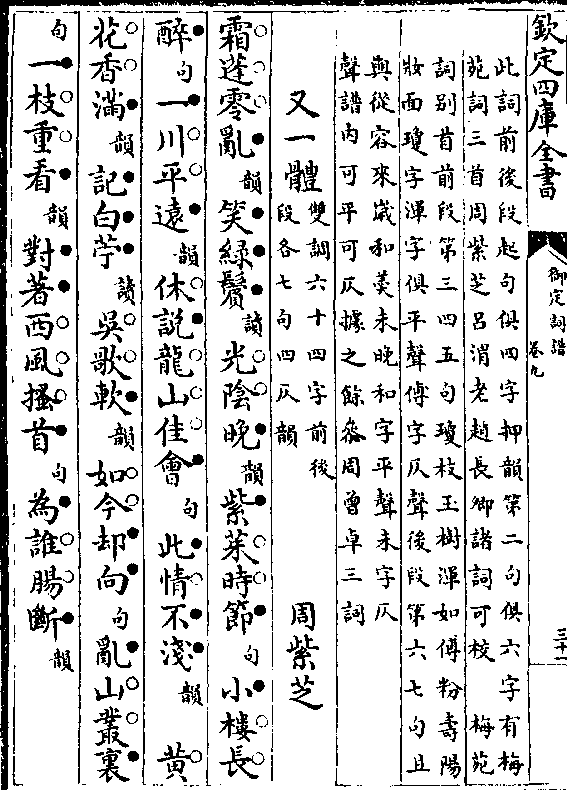 欽定四庫全書
御定詞譜
卷九
三十一
此詞前後段起句俱四字押韻第二句俱六字有梅
苑詞三首周紫芝呂渭老趙長卿諸詞可校　梅苑
詞別首前段第三四五句瓊枝玉樹渾如傅粉壽陽
妝面瓊字渾字俱平聲傅字仄聲後段第六七句且
與從容來歲和羮未晚和字平聲未字仄
聲譜内可平可仄據之餘參周曾卓三詞
又一體　雙調六十四字前後段各七句四仄韻　周紫芝
霜蓬零亂韻笑綠鬢讀光陰晚韻紫茱時節句小樓長
醉句一川平遠韻休説龍山佳會句此情不淺韻　黃
花香滿韻記白苧讀吳歌軟韻如今却向句亂山叢裏
句一枝重看韻對著西風搔首句為誰腸斷韻